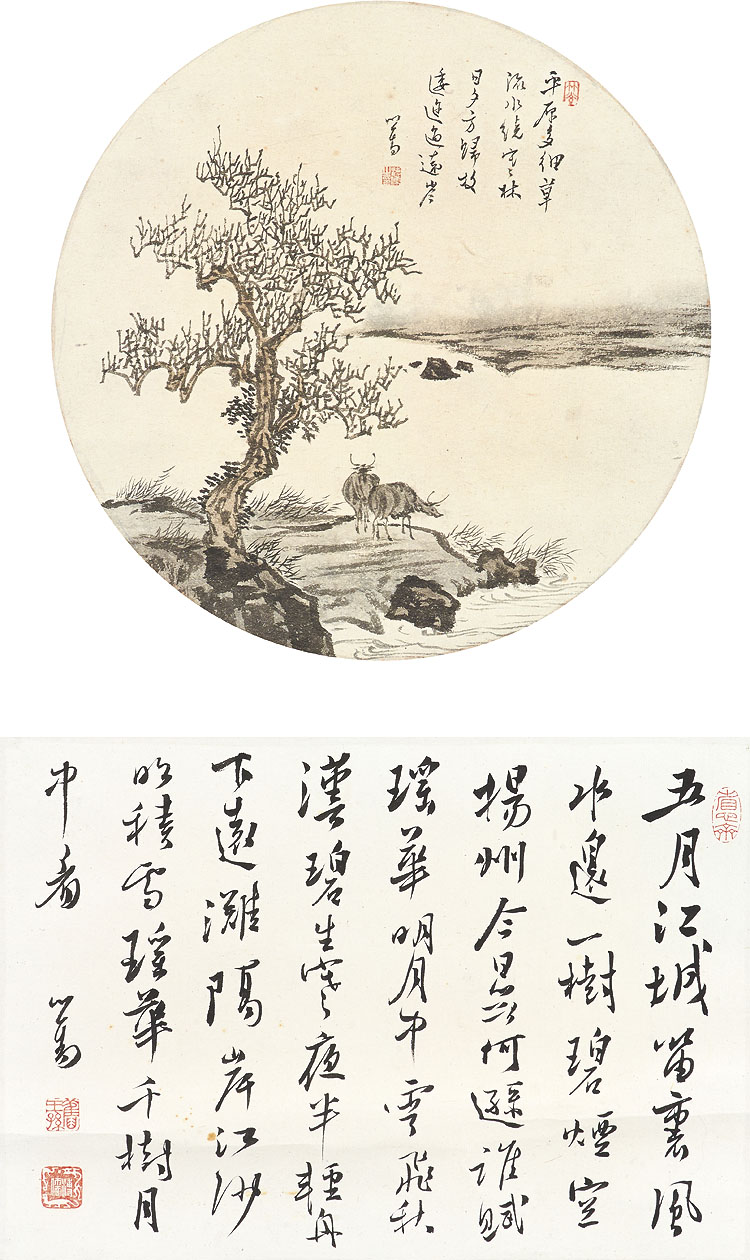 平原多細草
流水繞寒林
日夕方歸牧
逶迤過遠岑
心畬
五月江城笛裏風
水邊一樹碧煙空
揚州今日無何遜誰賦
瑤華明月中雲飛秋
漢碧生寒夜半輕舟
下遠灘隔岸江沙
明積雪瑤華千樹月
中看
心畬
舊王孫